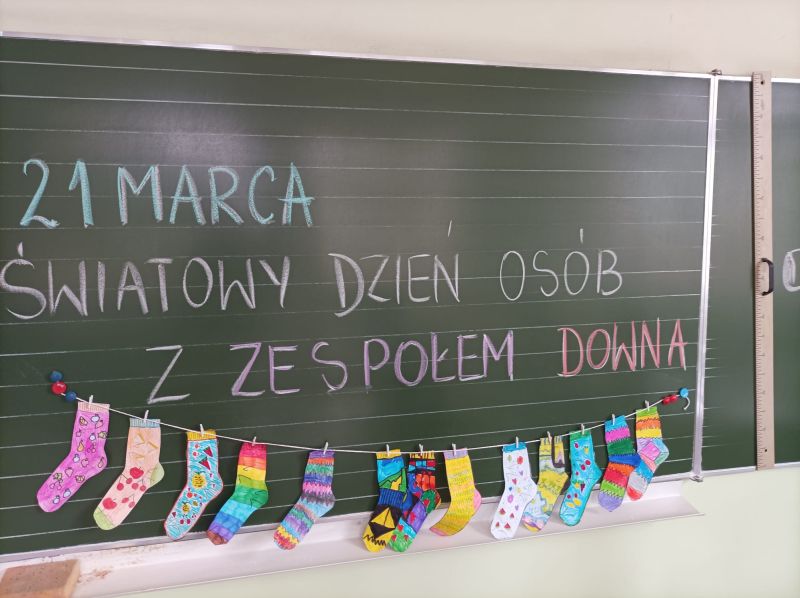 21 MARCA
ŚWIATOWY DZIEŃ OSÓB
Z ZESPOŁEM DOWNA